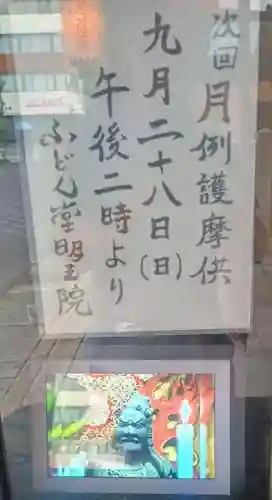 次回月例護摩供
九月二十八日(日)
午後二時より
ふどん堂明王院